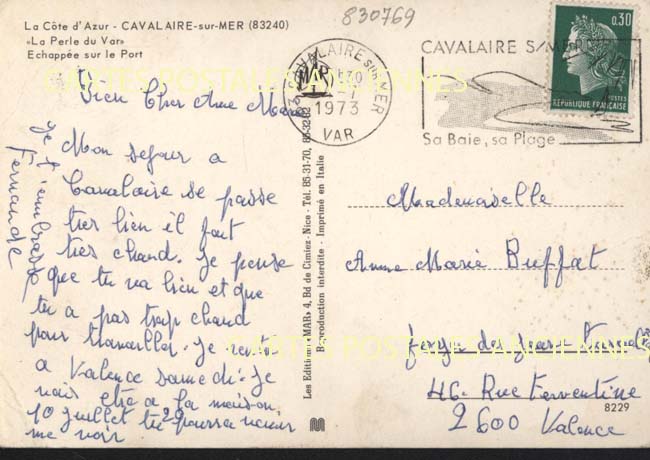 830769
La Côte d'Azur - CAVALAIRE-sur-MER (83240)
«La Perle du Var»
Echappée sur le Port
CARTES POSTALES ANCIENNES
Bien Cher Anne Marie
Mon sejour a
Cavalaire se passe
tres bien il fait
tres chaud. Je pense
que tu va bien et que
tu a pas trop chaud
pour travailler. Je
a Valence samedi. Je
vais etre a la maison
10 juillet tu
me voir
Je t'embrasse
Fernande
83 CAVALAIRE sur MER
1973
VAR
CAVALAIRE S/MER
Sa Baie, sa Plage
0,30
POSTES
REPUBLIQUE FRANÇAISE
Les Editions «MAR» 4, Bd de Cimiez - Nice - Tél. 85-31-70,
Reproduction interdite - Imprimé en Italie
Mademoiselle
Anne Marie Buffat
Foy
46. Rue Faventine
2600 Valence
8229
CARTES POSTALES ANCIENNES